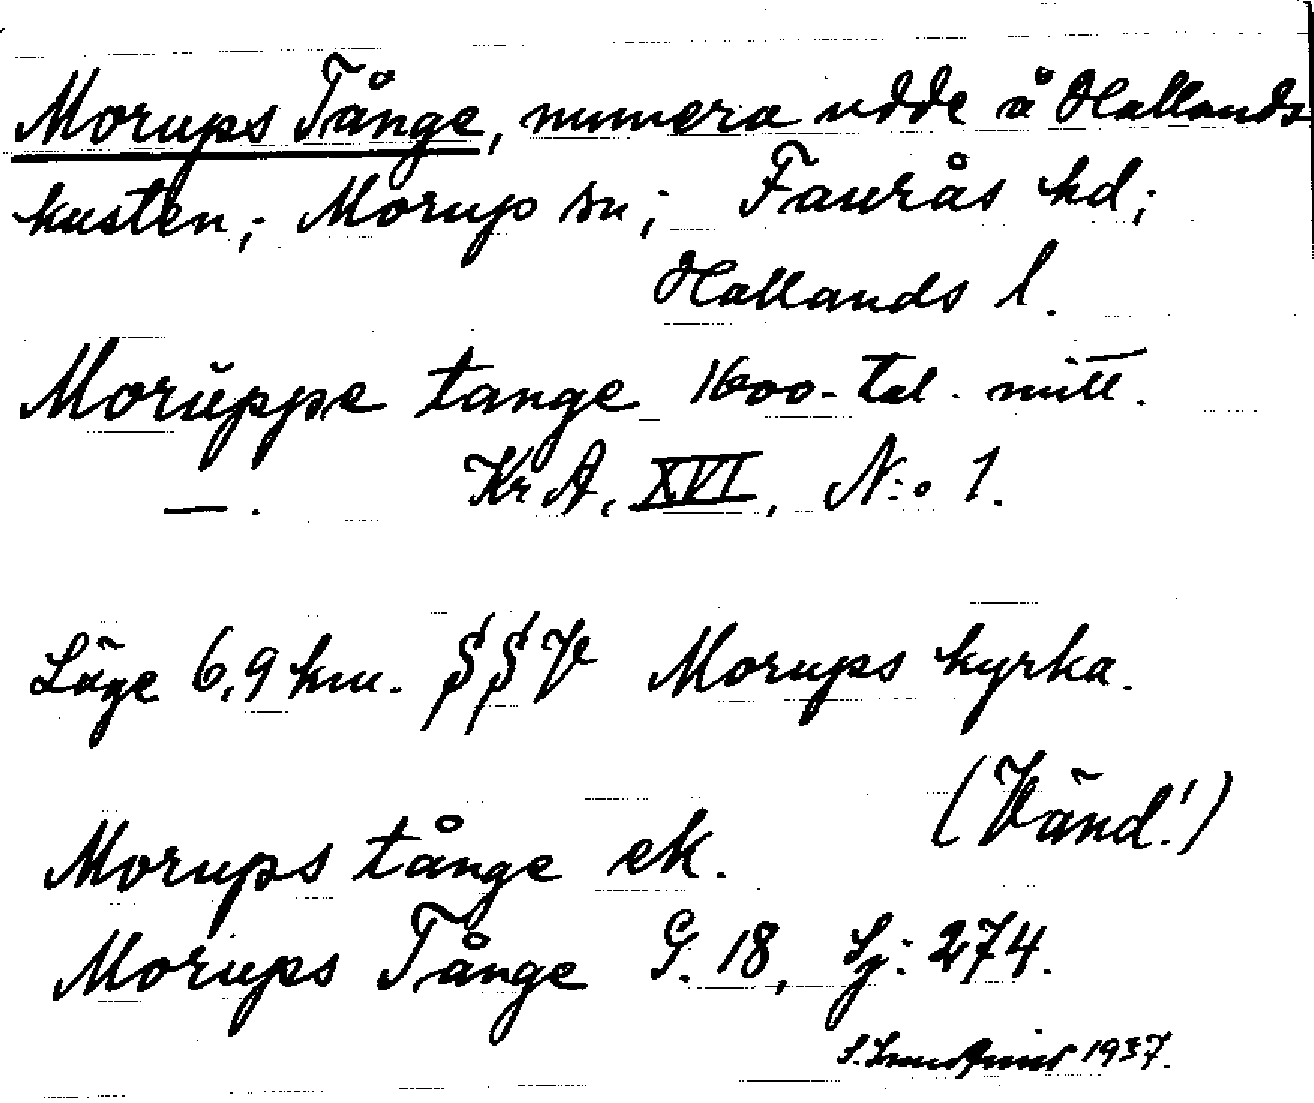 Morups Tånge, numera udde å Hallands
kusten; Morup sn; Faurås hd;
Hallands l.
Moruppe tange 1600-tal. mitt.
—. KrA, XVI, N:o 1.
Läge 6,9 km. SSV Morups kyrka.
(Vänd!)
Morups tånge ek.
Morups Tånge G. 18, Sj: 274.
1937.